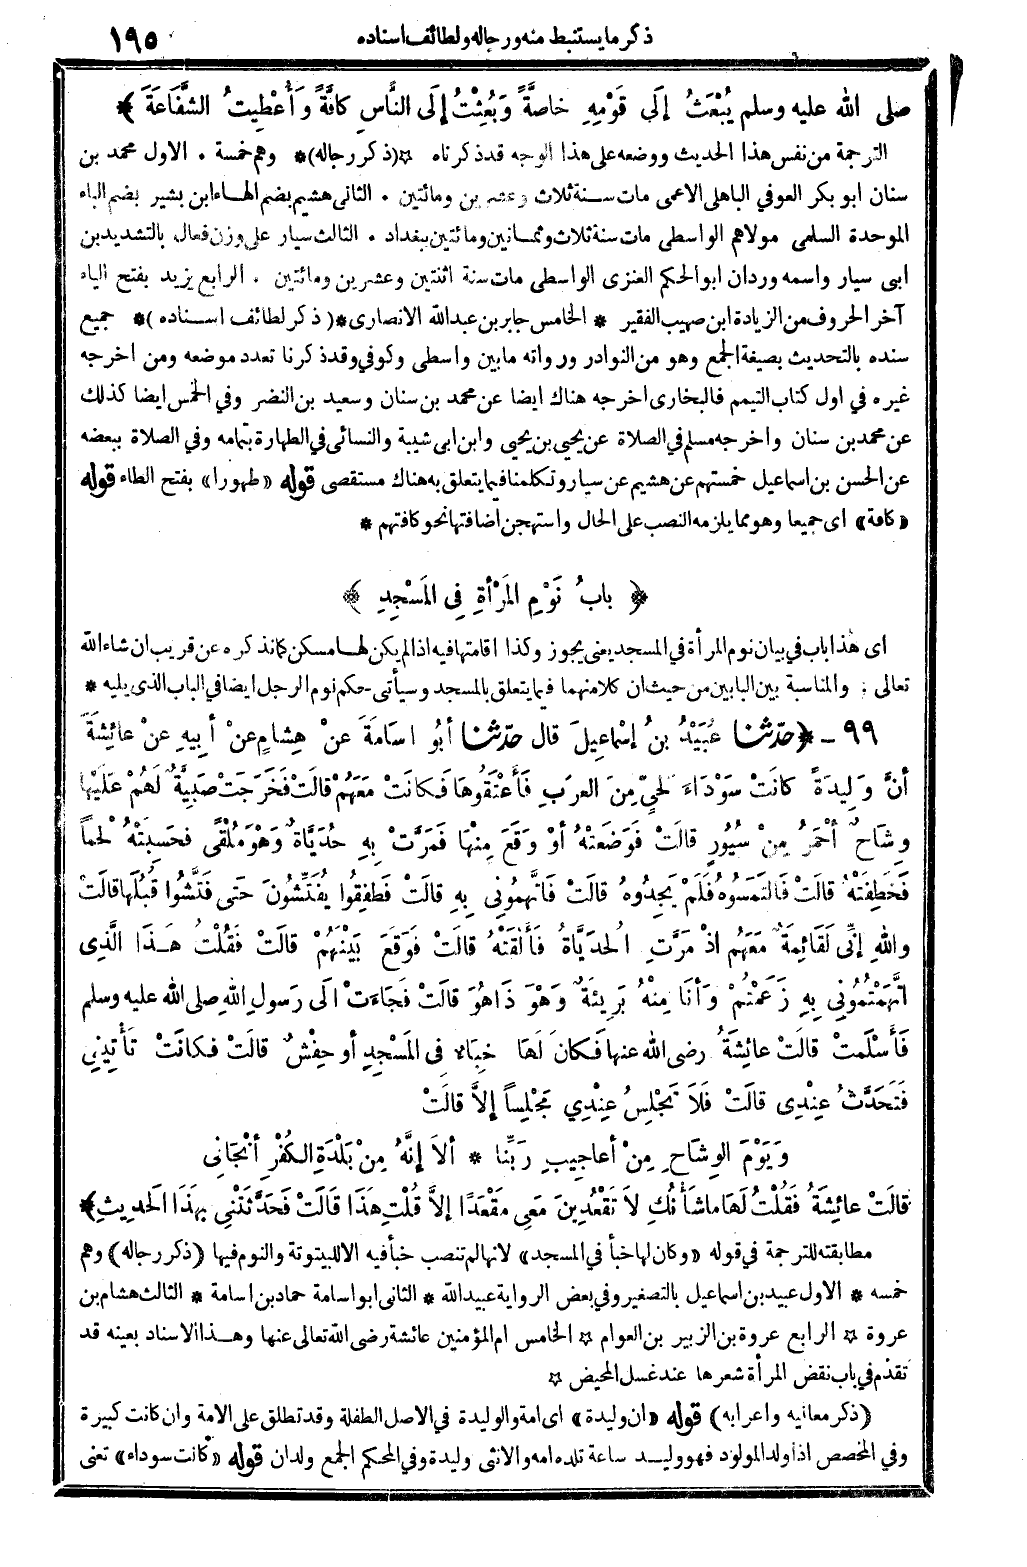 ذكر ما يستنبط منه ورجاله ولطائف اسناده ١٩٥
صلى الله عليه وسلم يُبْعَثُ إلَى قَوْمِهِ خاصَّةً وَبُعِثْتُ إلَى النَّاسِ كافَّةً وَأُعْطِيتُ الشَّفَاعَةَ ﴾
الترجمة من نفس هذا الحديث ووضعه على هذا الوجه قد ذكرناه ☆(ذكر رجاله)* وهم خمسة . الاول محمد بن
سنان ابو بكر العوفي الباهلى الاعمى مات سنة ثلاث وعشرين ومائتين . الثانى هشيم بضم الهاء ابن بشير بضم الباء
الموحدة السلمى مولاهم الواسطى مات سنة ثلاث وثمانين ومائتين ببغداد . الثالث سيار على وزن فعال بالتشديد بن
ابى سيار واسمه وردان ابو الحكم العنزى الواسطى مات سنة اثنتين وعشرين ومائتين . الرابع يزيد بفتح الياء
آخر الحروف من الزيادة ابن صهيب الفقير * الخامس جابر بن عبدالله الانصارى*( ذكر لطائف اسناده )* جميع
سنده بالتحديث بصيغة الجمع وهو من النوادر ورواته ما بين واسطى وكوفي وقد ذكرنا تعدد موضعه ومن اخرجه
غيره في اول كتاب التيمم فالبخارى اخرجه هناك ايضا عن محمد بن سنان وسعيد بن النضر وفي الخمس ايضا كذلك
عن محمد بن سنان واخرجه مسلم في الصلاة عن يحيى بن يحيى وابن ابى شيبة والنسائى في الطهارة بتمامه وفي الصلاة ببعضه
عن الحسن بن اسماعيل خمستهم عن هشيم عن سيار وتكلمنا فيما يتعلق به هناك مستقصى قوله «طهورا» بفتح الطاء قوله
«كافة» اى جميعا وهو مما يلزمه النصب على الحال واستهجن اضافتها نحو كافتهم *
﴿ بابُ نَوْمِ المَرْأةِ فِى المَسْجِدِ ﴾
اى هذا باب في بيان نوم المرأة في المسجد يعنى يجوز وكذا اقامتها فيه اذا لم يكن لها مسكن كما نذكره عن قريب ان شاء الله
تعالى ؛ والمناسبة بين البابين من حيث ان كلا منهما فيما يتعلق بالمسجد وسيأتى حكم نوم الرجل ايضا في الباب الذى يليه *
٩٩ - ﴿حدّثنا عُبَيْدُ بنُ إسْماعِيلَ قال حدّثنا أبُو اسامَةَ عنْ هِشامٍ عنْ أبيهِ عنْ عائِشَةَ
أنَّ وَلِيدَةً كانَتْ سَوْدَاءَ لِحَيٍّ مِنَ العرَبِ فَأَعْتَقُوها فَكانَتْ مَعَهُمْ قالَتْ فَخَرَجَتْ صَبِيَّةٌ لَهُمْ عَلَيْها
وِشَاحٌ أحْمَرُ مِنْ سُيُورٍ قالَتْ فَوَضَعَتْهُ أوْ وَقَعَ مِنْهَا فَمَرَّتْ بِهِ حُدَيَّاةٌ وَهْوَ مُلْقًى فحَسِبَتْهُ لَحْماً
فَخَطِفَتْهُ قالَتْ فَالتَمَسُوهُ فَلَمْ يَجِدُوهُ قالَتْ فَاتَّهَمُونِي بِهِ قالَتْ فَطَفِقُوا يُفَتِّشُونَ حَتى فَتَّشُوا قُبُلَها قالَتْ
واللهِ إنِّى لَقَائِمَةٌ مَعَهُم اذْ مَرَّتِ الحُدَيَّاةُ فَأَلْقَتْهُ قالَتْ فَوَقَعَ بَيْنَهُمْ قالَتْ فَقُلْتُ هَذَا الَّذِى
اتَّهَمْتُمُونِي بِهِ زَعَمْتُمْ وَأنَا مِنْهُ بَرِيئَةٌ وَهْوَ ذَاهُوَ قالَتْ فَجَاءَتْ الَى رَسولِ اللهِ صلى الله عليه وسلم
فَأَسْلَمتْ قالَتْ عائِشَةُ رضى الله عنها فَكانَ لَهَا خِبَاءٌ فى المَسْجِدِ أو حِفْشٌ قالَتْ فكانَتْ تَأْتِينِي
فَتَحَدَّثُ عِنْدِى قالَتْ فَلاَ تَجْلِسُ عِنْدِي مَجْلِساً إلاَّ قالَتْ
وَيَوْمَ الوِشَاحِ مِنْ أعاجِيبِ رَبِّنا * ألاَ إنَّهُ مِنْ بَلْدَةِ الكُفْرِ أنْجَانِى
قالَتْ عائِشَةُ فَقُلْتُ لَهَا ما شَأْنُكِ لاَ تَقْعُدِينَ مَعِى مَقْعَدًا إلاَّ قُلْتِ هَذَا قَالَتْ فَحَدَّثَتْنِى بِهَذَا الحَدِيثِ﴾
مطابقته للترجمة في قوله «وكان لها خبأ في المسجد» لانها لم تنصب خبأ فيه الا للبيتوتة والنوم فيها (ذكر رجاله) وهم
خمسه * الاول عبيد بن اسماعيل بالتصغير وفي بعض الرواية عبيد الله * الثانى ابو اسامة حماد بن اسامة * الثالث هشام بن
عروة ☆ الرابع عروة بن الزبير بن العوام ☆ الخامس ام المؤمنين عائشة رضى الله تعالى عنها وهذا الاسناد بعينه قد
تقدم في باب نقض المرأة شعرها عند غسل المحيض ☆
(ذكر معانيه واعرابه) قوله «ان وليدة» اى امة والوليدة في الاصل الطفلة وقد تطلق على الامة وان كانت كبيرة
وفي المخصص اذا ولد المولود فهو وليد ساعة تلده امه والانثى وليدة وفي المحكم الجمع ولدان قوله «كانت سوداء» تعنى